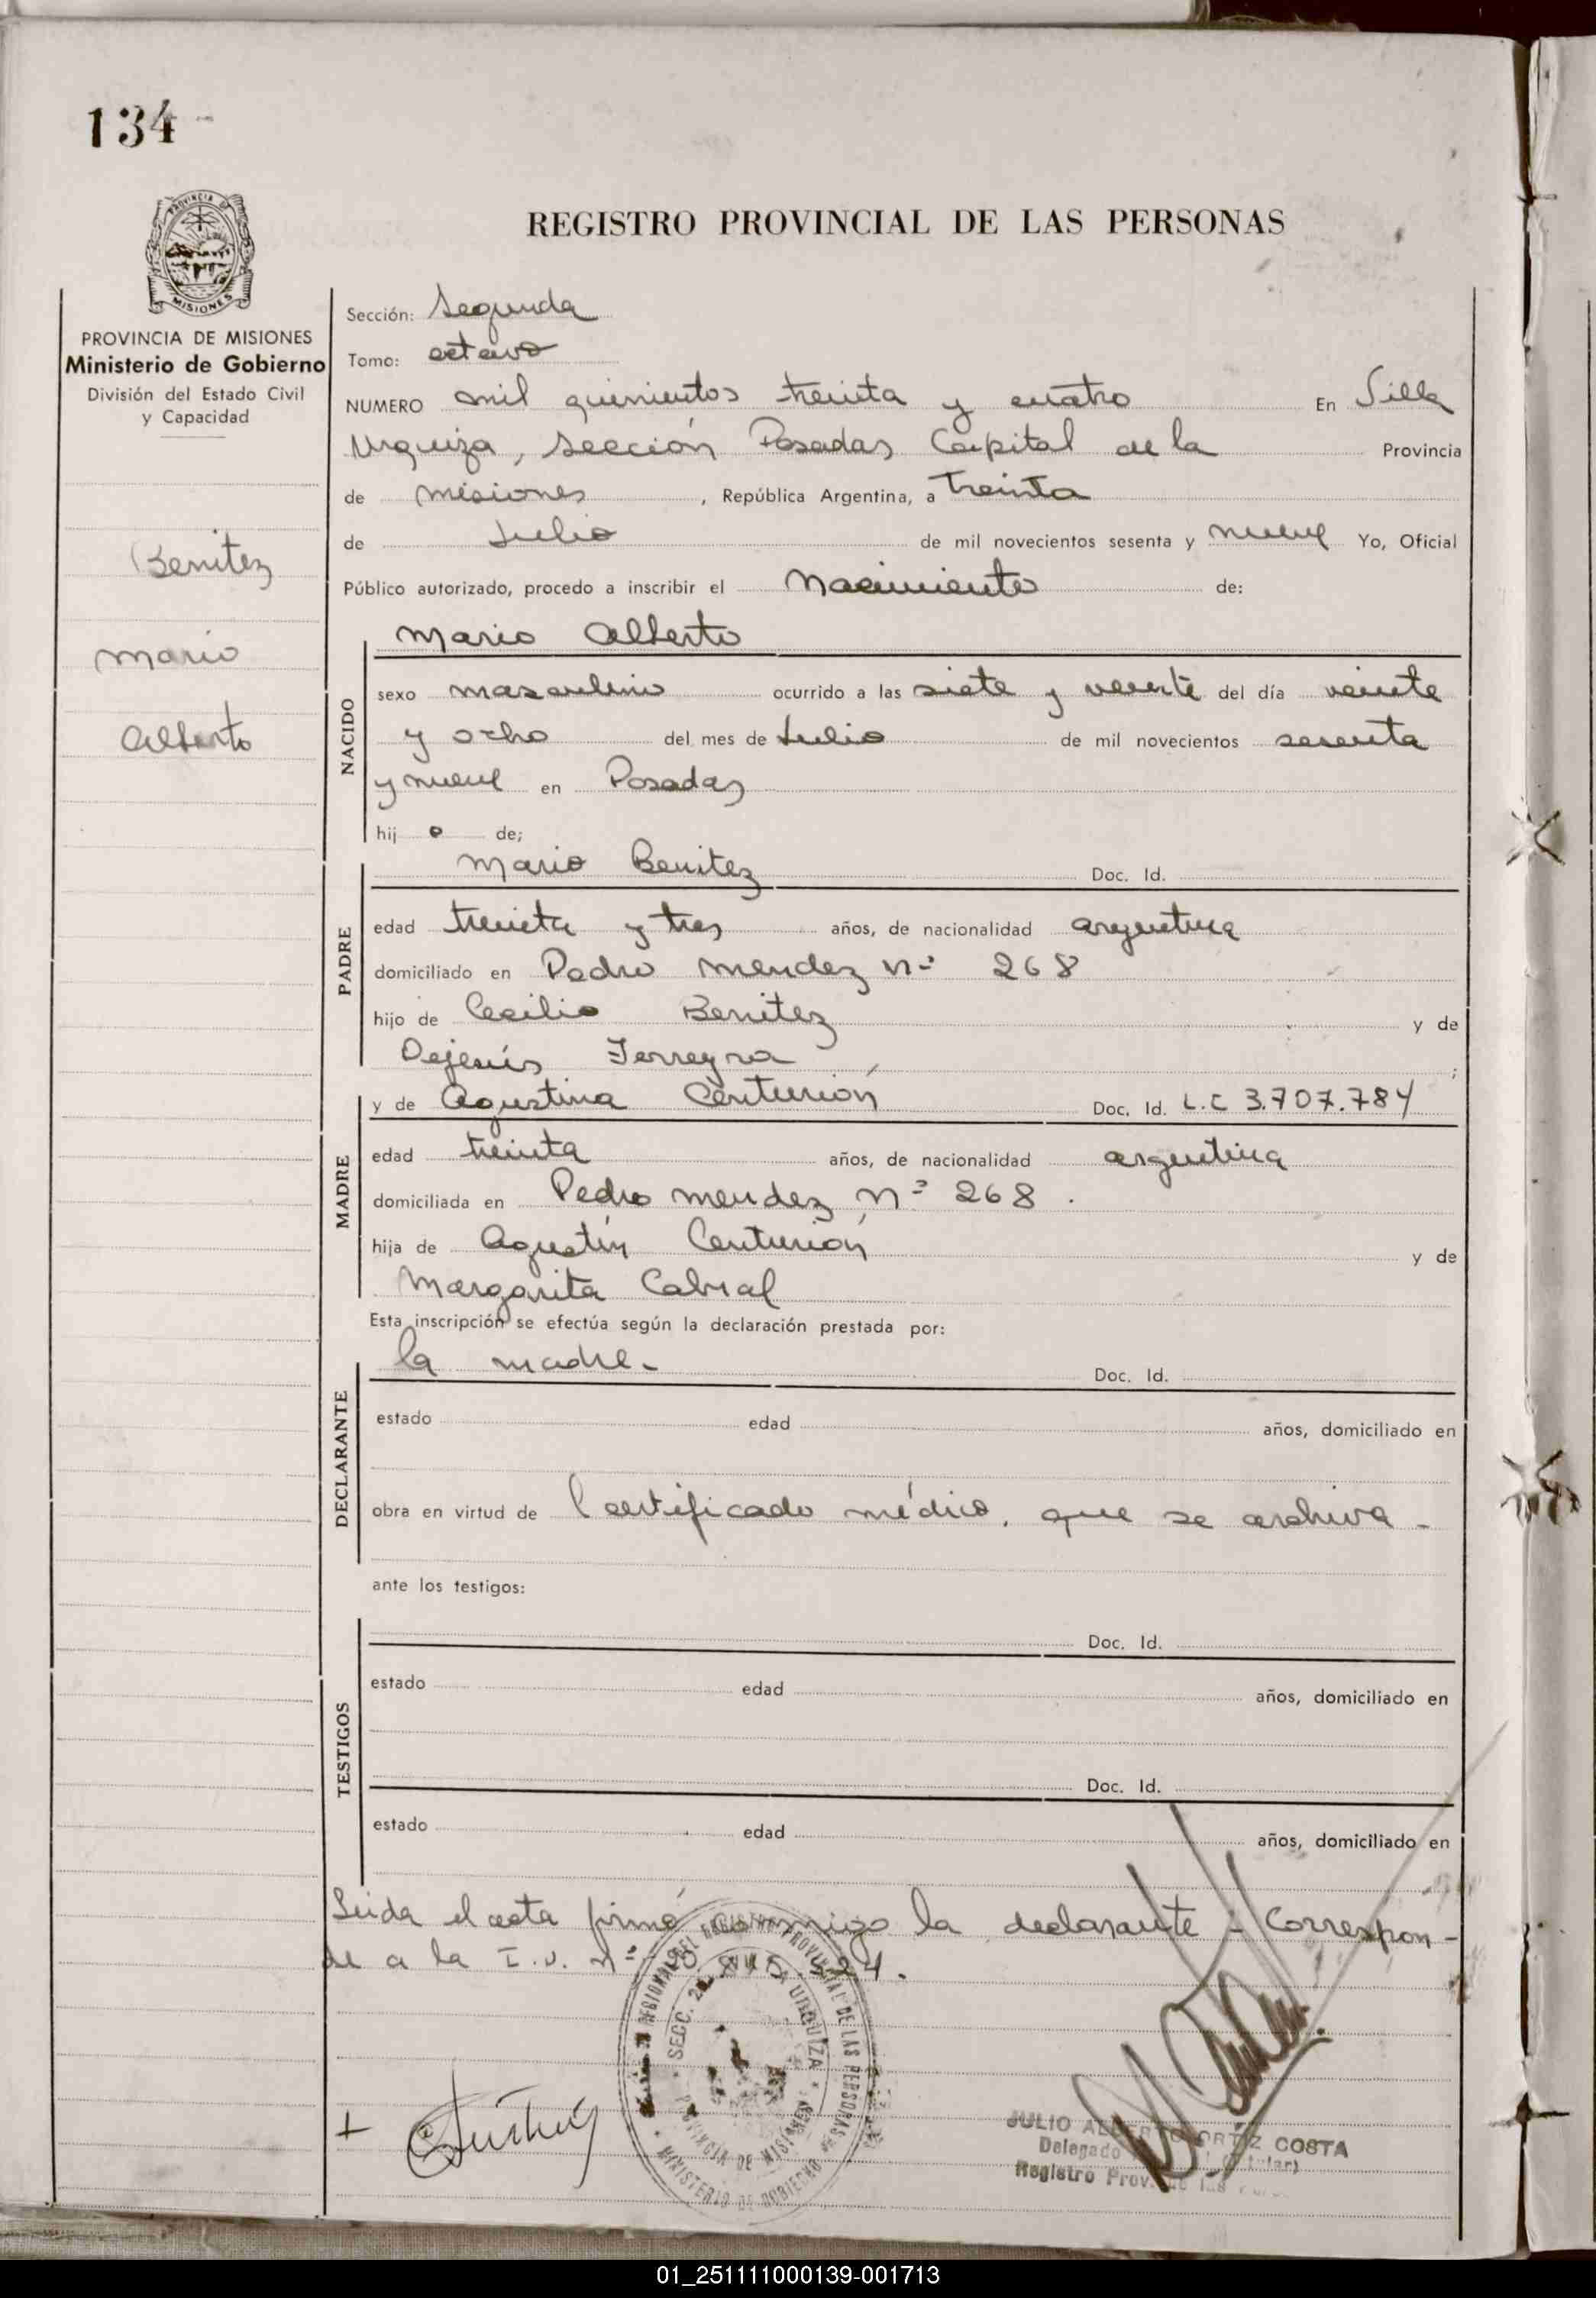 134
REGISTRO PROVINCIAL DE LAS PERSONAS
MISIONES
PROVINCIA DE MISIONES
Ministerio de Gobierno
División del Estado Civil
y Capacidad
Benitez
Mario
Alberto
Sección: Segunda
Tomo: octavo
NUMERO mil quinientos treinta y cuatro En Villa
Urquiza, Sección Posadas Capital de la Provincia
de Misiones, República Argentina, a Treinta
de Julio de mil novecientos sesenta y nueve Yo, Oficial
Público autorizado, procedo a inscribir el Nacimiento de:
Mario Alberto
NACIDO
sexo masculino ocurrido a las siete y veinte del día veinte
y ocho del mes de Julio de mil novecientos sesenta
y nueve en Posadas
hij o de;
PADRE
Mario Benitez Doc. Id.
edad treinta y tres años, de nacionalidad argentina
domiciliado en Pedro Mendez nº 268
hijo de Cecilio Benitez y de
Dejesús Ferreyra ;
MADRE
y de Agustina Centurión Doc. Id. L.C 3.707.784
edad treinta años, de nacionalidad argentina
domiciliada en Pedro Mendez Nº 268.
hija de Agustín Centurión y de
Margarita Cabral
Esta inscripción se efectúa según la declaración prestada por:
DECLARANTE
la madre- Doc. Id.
estado edad años, domiciliado en
obra en virtud de Certificado médico, que se archiva-
ante los testigos:
TESTIGOS
Doc. Id.
estado edad años, domiciliado en
Doc. Id.
estado edad años, domiciliado en
Leida el acta firmó conmigo la declarante - Correspon-
de a la I.U. nº
REGISTRO PROVINCIAL DE LAS PERSONAS
SECC. 2ª URQUIZA
PROVINCIA DE MISIONES
MINISTERIO DE GOBIERNO
JULIO ALBERTO ORTIZ COSTA
Delegado
Registro Prov.
01_251111000139-001713